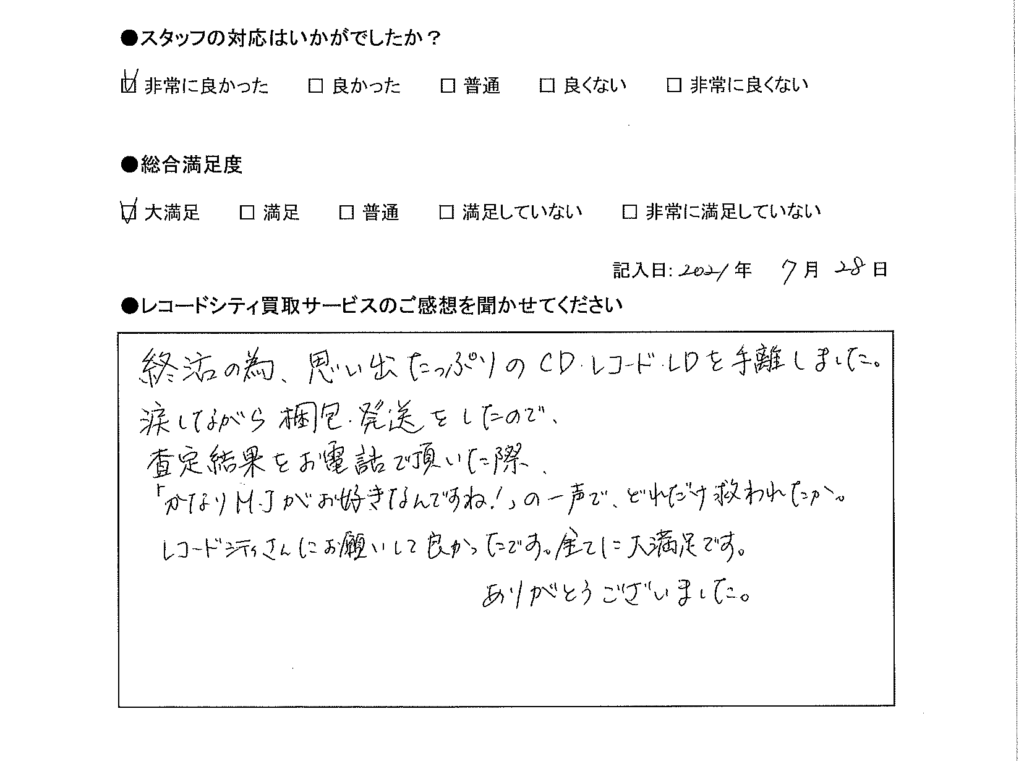 ●スタッフの対応はいかがでしたか？
☑ 非常に良かった □ 良かった □ 普通 □ 良くない □ 非常に良くない
●総合満足度
☑ 大満足 □ 満足 □ 普通 □ 満足していない □ 非常に満足していない
記入日: 2021年 7月 28日
●レコードシティ買取サービスのご感想を聞かせてください
終活の為、思い出たっぷりのCD・レコード・LDを手離しました。
涙しながら梱包・発送をしたので、
査定結果をお電話で頂いた際、
「かなりM.Jがお好きなんですね！」の一声で、どれだけ救われたか。
レコードシティさんにお願いして良かったです。全てに大満足です。
ありがとうございました。